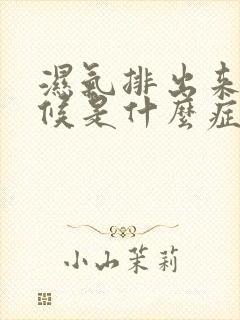 濕氣排出來
候是什麼症
小山茉莉